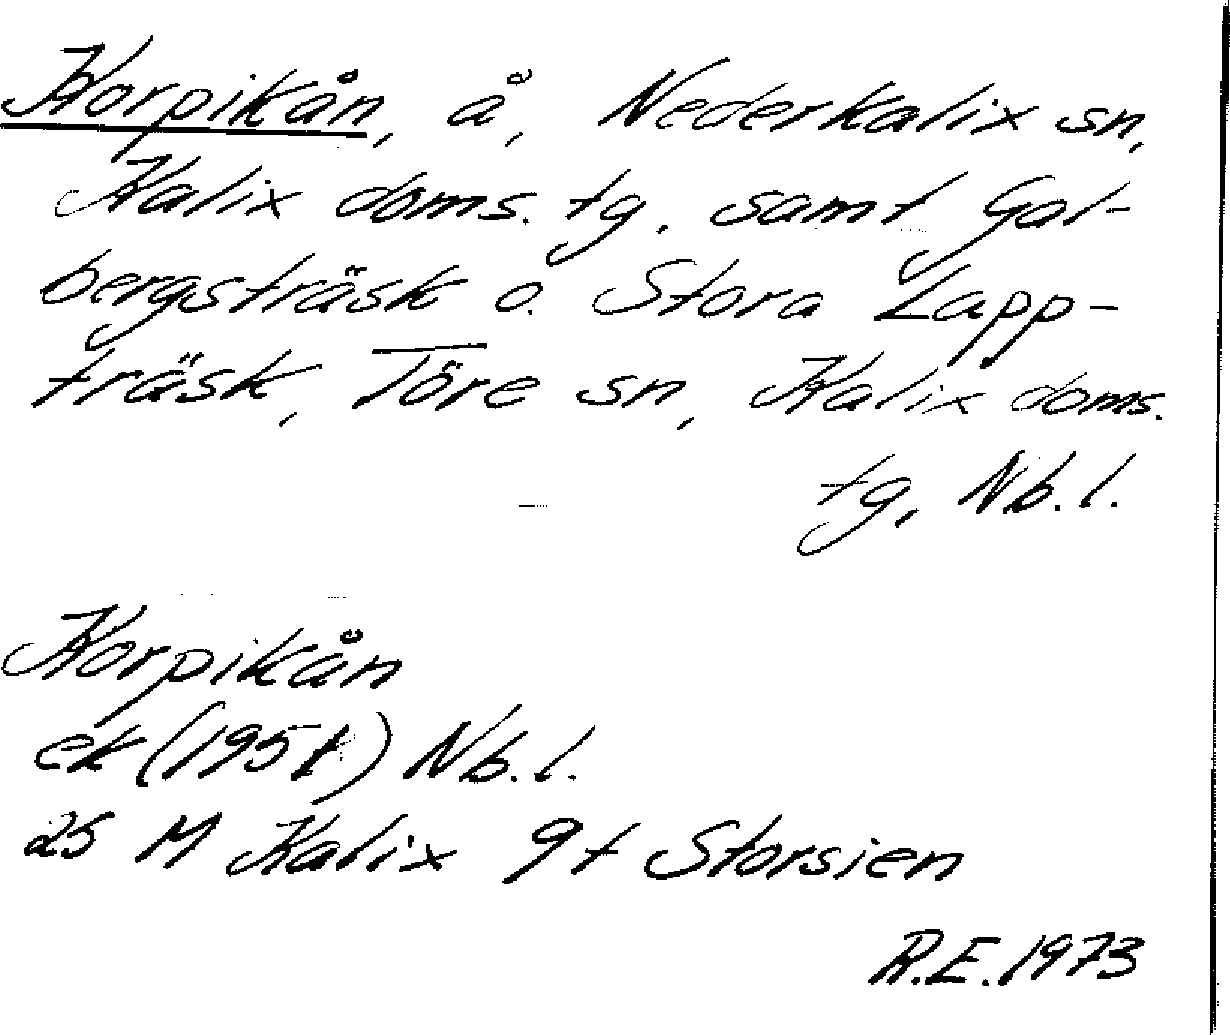 Korpikån, å, Nederkalix sn,
Kalix doms. tg. samt Gol-
bergsträsk o. Stora Lapp-
träsk, Töre sn, Kalix doms.
tg, Nb.l.
Korpikån
ek (1951) Nb.l.
25 M Kalix 9f Storsien
R.E. 1973